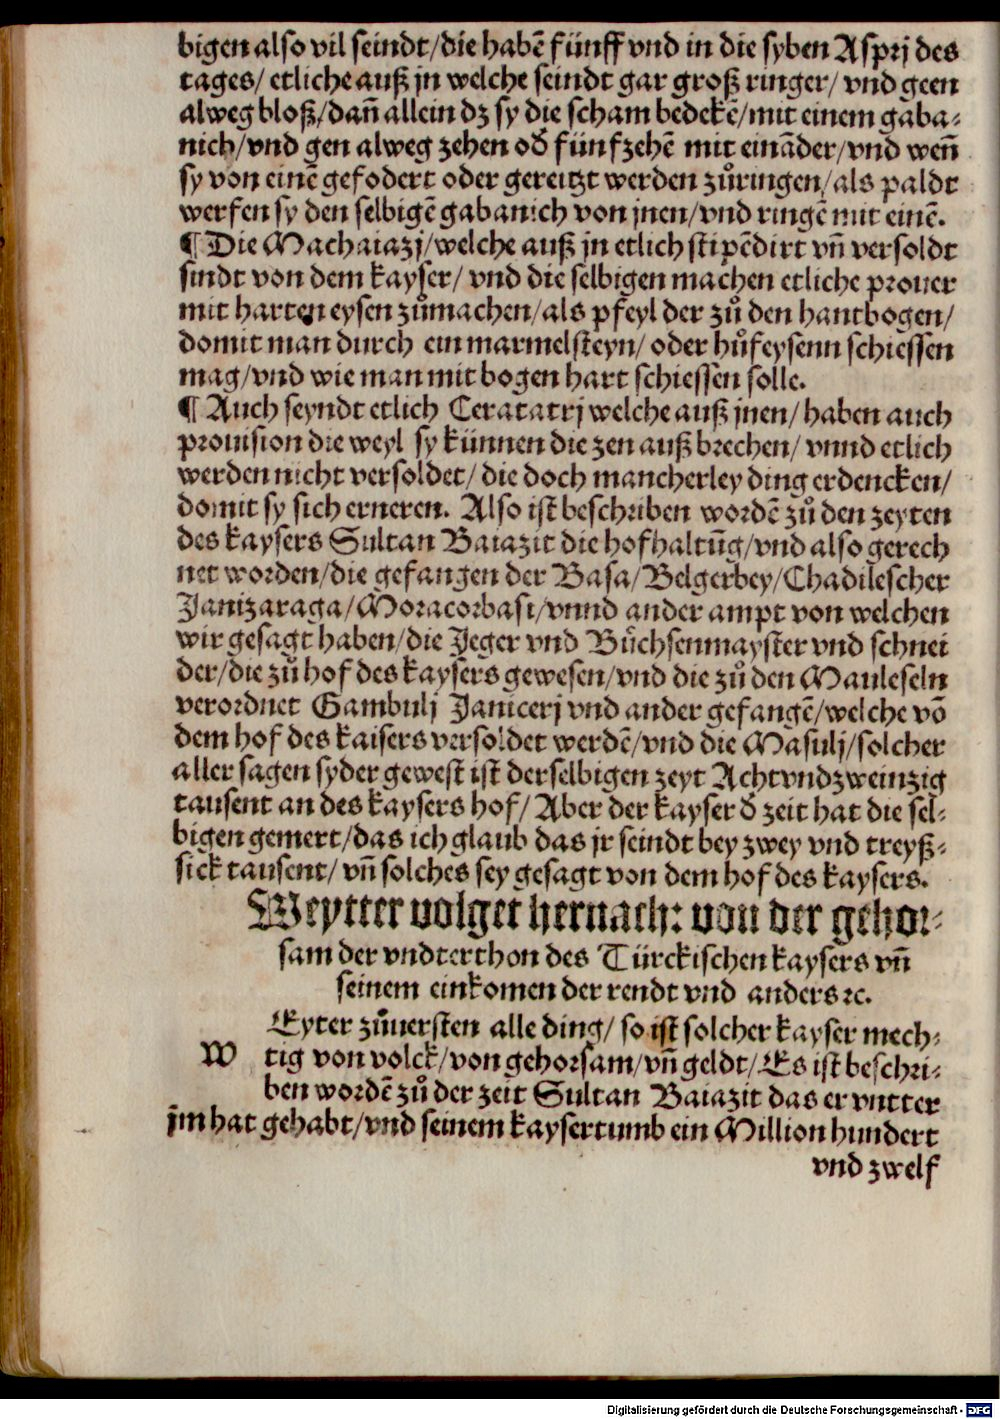 bigen also vil seindt/die habē fünff vnd in die syben Asprj des
tages/ etliche auß jn welche seindt gar groß ringer/ vnd geen
alweg bloß/dañ allein dz sy die scham bedekē/mit einem gaba-
nich/vnd gen alweg zehen od̕ fünfzehē mit eināder/vnd weñ
sy von einē gefodert oder gereitzt werden zůringen/als paldt
werfen sy den selbigē gabanich von jnen/vnd ringē mit einē.
¶ Die Machaiazj/welche auß jn etlich stipēdirt vñ versoldt
sindt von dem kayser/ vnd die selbigen machen etliche prouer
mit harten eysen zůmachen/als pfeyl der zů den hantbogen/
domit man durch ein marmelsteyn/ oder hůfeysenn schiessen
mag/vnd wie man mit bogen hart schiessen solle.
¶ Auch seyndt etlich Ceratatrj welche auß jnen/ haben auch
prouision die weyl sy künnen die zen auß brechen/ vnnd etlich
werden nicht versoldet/ die doch mancherley ding erdencken/
domit sy sich erneren. Also ist beschriben wordē zů den zeyten
des kaysers Sultan Baiazit die hofhaltūg/vnd also gerech
net worden/die gefangen der Basa/Belgerbey/Chadilescher
Janizaraga/Moracorbasi/vnnd ander ampt von welchen
wir gesagt haben/die Jeger vnd Büchsenmayster vnd schnei
der/die zů hof des kaysers gewesen/vnd die zů den Mauleseln
verordnet Gambulj Janicerj vnd ander gefangē/welche vō
dem hof des kaisers versoldet werdē/vnd die Masulj/solcher
aller sagen syder gewest ist derselbigen zeyt Achtvndzweinzig
tausent an des kaysers hof/ Aber der kayser d̕ zeit hat die sel-
bigen gemert/das ich glaub das jr seindt bey zwey vnd treyß-
sick tausent/ vñ solches sey gesagt von dem hof des kaysers.
Weytter volget hernach: von der gehor-
sam der vndterthon des Türckischen kaysers vñ
seinem einkomen der rendt vnd anders ꝛc.
W Eyter zůuersten alle ding/ so ist solcher kayser mech-
tig von volck/von gehorsam/vñ geldt/Es ist beschri-
ben wordē zů der zeit Sultan Baiazit das er vntter
jm hat gehabt/vnd seinem kaysertumb ein Million hundert
vnd zwelf
Digitalisierung gefördert durch die Deutsche Forschungsgemeinschaft - DFG